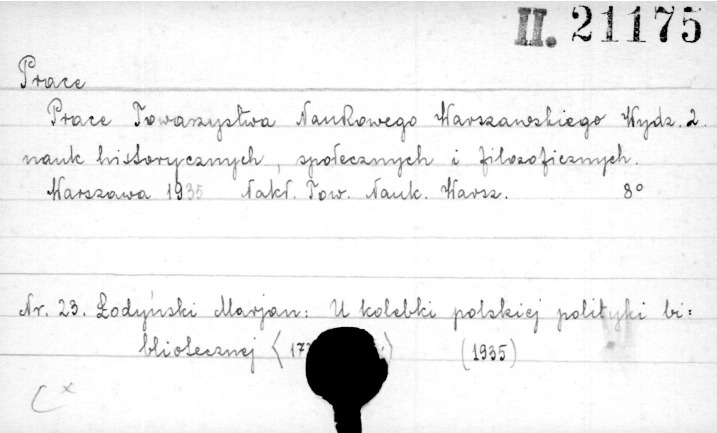 II. 21175
Prace
Prace Towarzystwa Naukowego Warszawskiego Wydz. 2.
nauk historycznych, społecznych i filozoficznych.
Warszawa 1935 Nakł. Tow. Nauk. Warsz. 8°
Nr. 23. Łodyński Marjan: U kolebki polskiej polityki bi=
bliotecznej (1935)